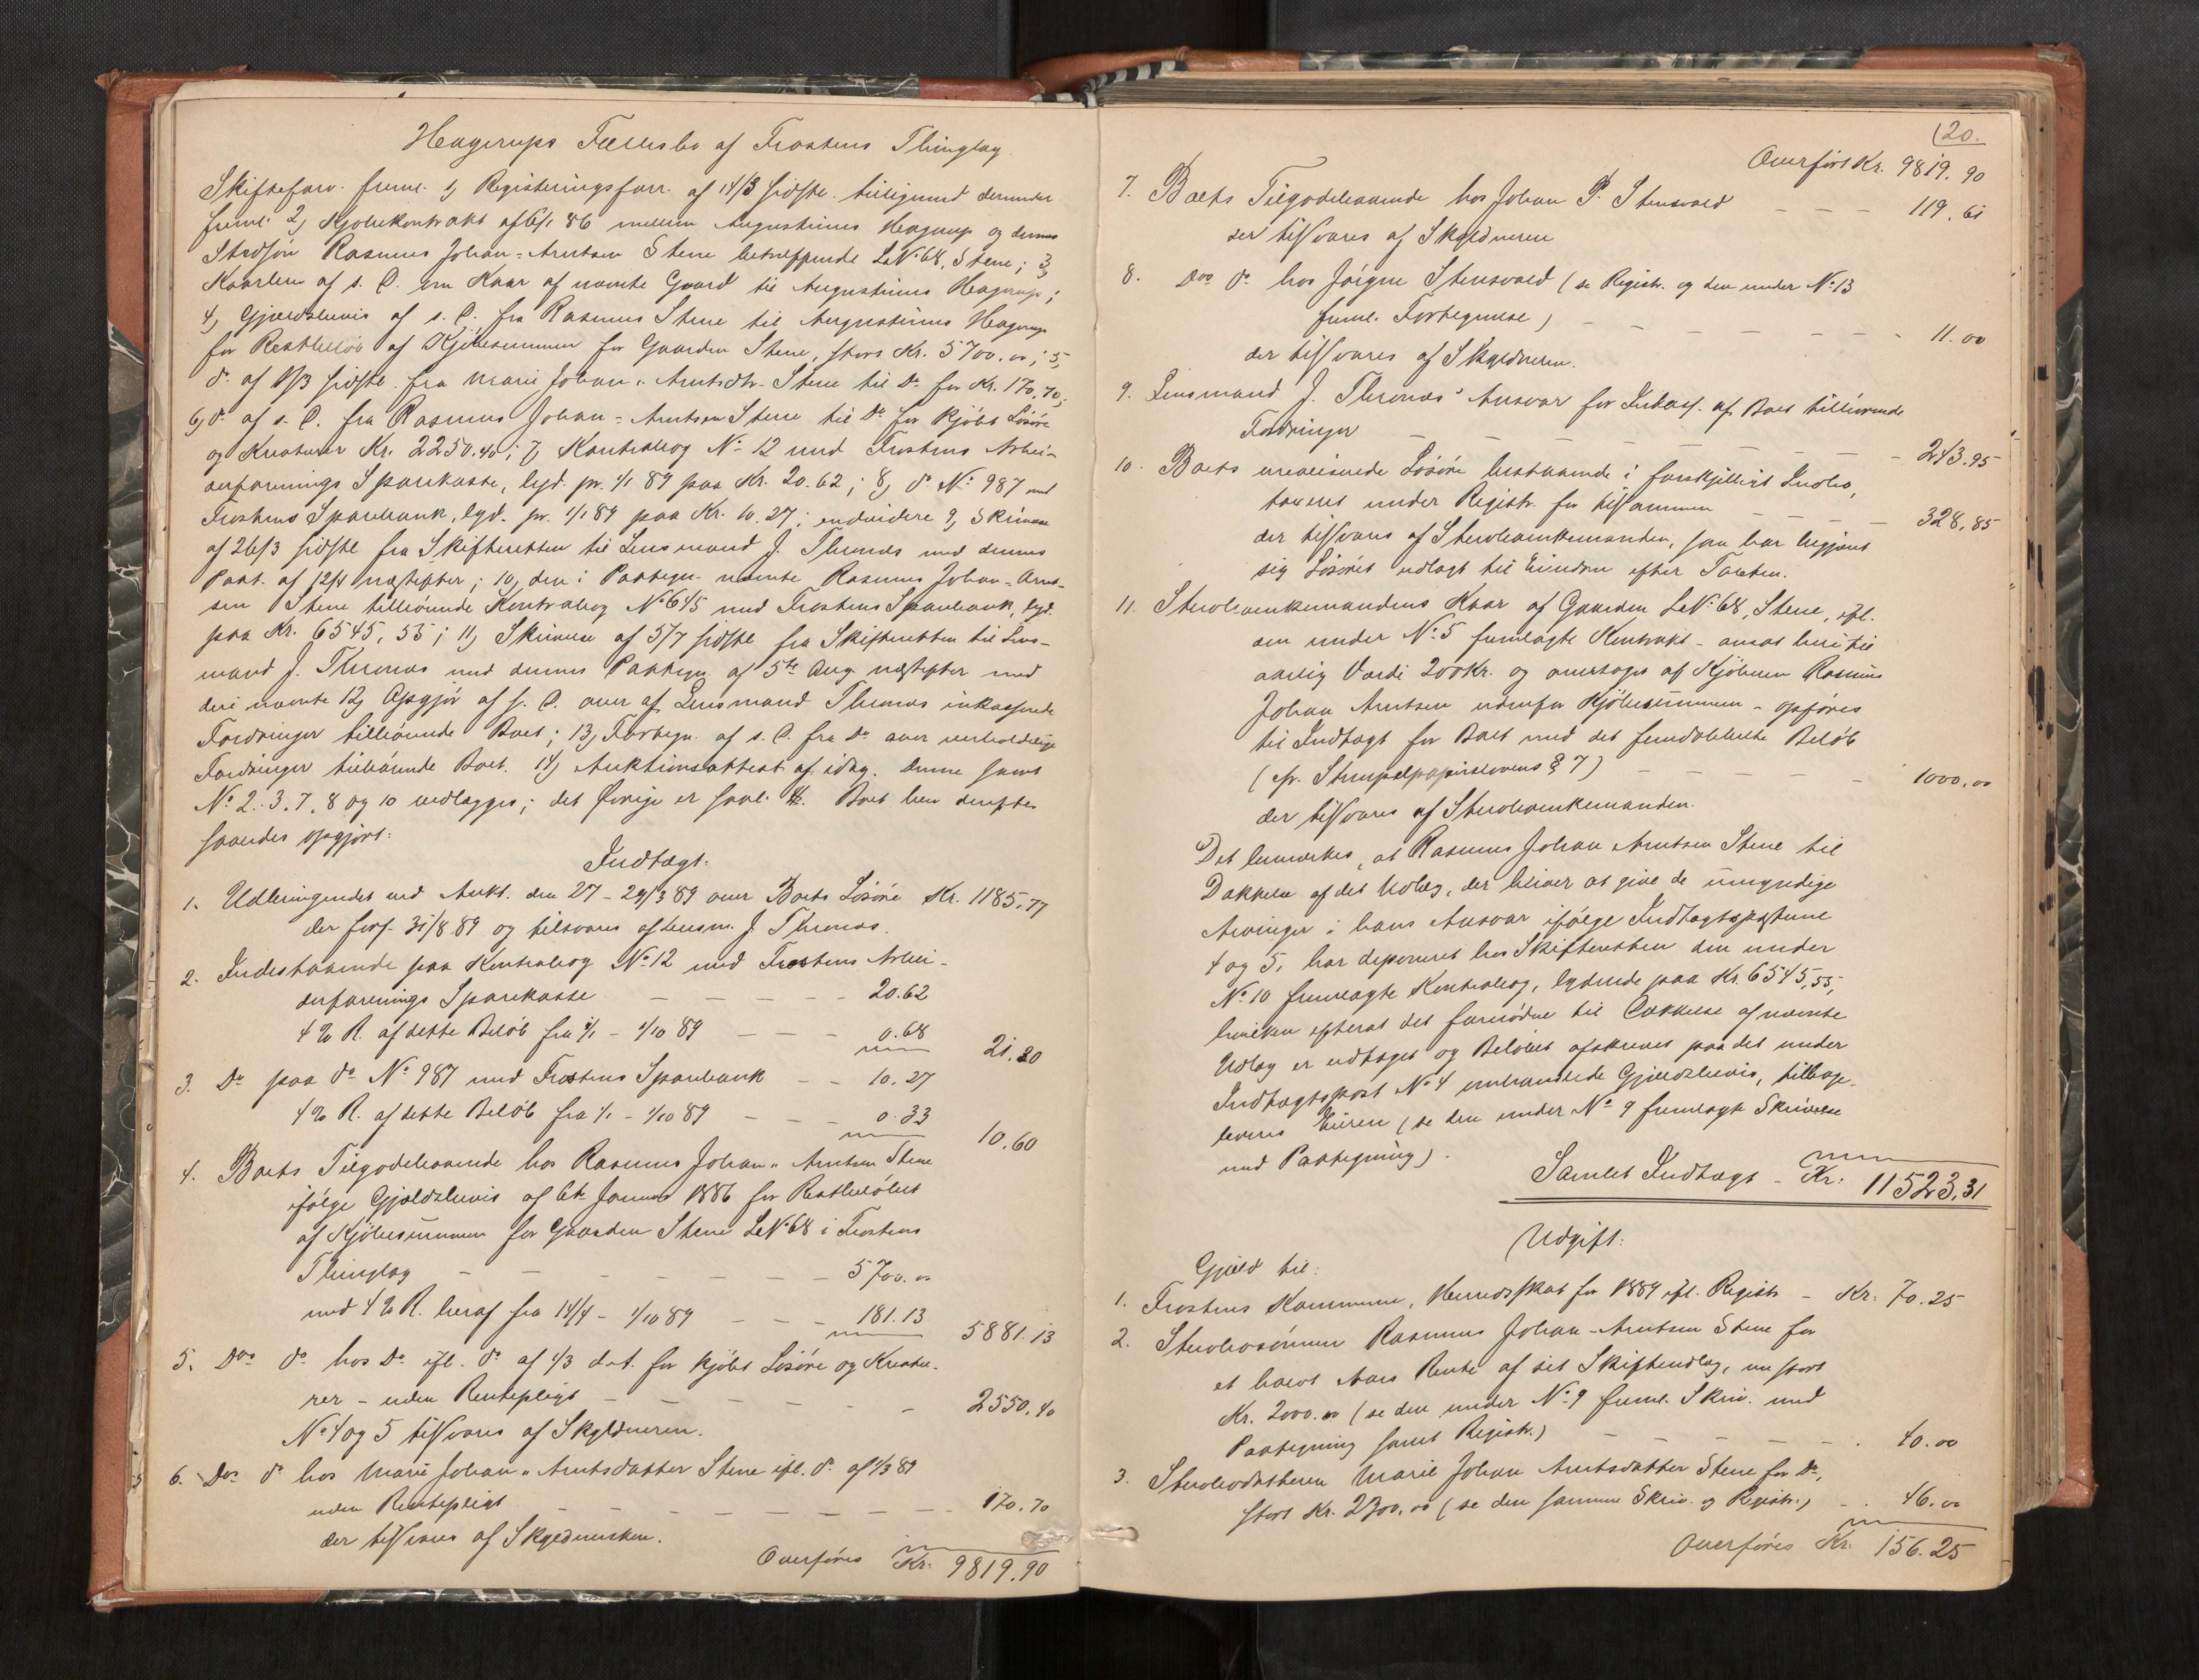 Hagerups Fællesbo af Frostens Thinglag.
Skifteforv. freml. 1) Registeringsforr. af 14/3 sidstl. tilligemed derunder
freml. 2) Kjøbekontrakt af 6/1 86 mellem Augustinus Hagerup og dennes
Stedsøn Rasmus Johan-Arntsen Stene betræffende LNo 68, Stene; 3)
Kaarbrev af s. D. om Kaar af nævnte Gaard til Augustinus Hagerup;
4) Gjældsbevis af s. D. fra Rasmus Stene til Augustinus Hagerup
for Restbeløb af Kjøbesummen for Gaarden Stene, stort Kr. 5700.00; 5)
do af 1/3 sidstl. fra Marie Johan-Arntsdtr. Stene til Do for Kr. 170.70;
6) do af s. D. fra Rasmus Johan-Arntsen Stene til Do for kjøbt Løsøre
og Kreaturer Kr. 2250.40; 7) Kontrabog No 12 med Frostens Arbei-
derforenings Sparekasse, lyd. pr. 1/1 89 paa Kr. 20.62; 8) do No 987 med
Frostens Sparebank, lyd. pr. 1/1 89 paa Kr. 10.27; endvidere 9) Skrivelse
af 26/3 sidstl. fra Skifteretten til Lensmand J. Thrønæs med dennes
Paat. af 12/4 næstefter; 10) den i Paategn. nævnte Rasmus Johan-Arnt-
sen Stene tilhørende Kontrabog No 645 med Frostens Sparebank, lyd.
paa Kr. 6545,55; 11) Skrivelse af 5/7 sidstl. fra Skifteretten til Lens-
mand J. Thrønæs med dennes Paategn. af 5te Aug. næstefter med
deri nævnte 12) Opgjør af s. D. over af Lensmand Thrønæs inkasserede
Fordringer tilhørende Boet; 13) Fortegn. af s. D. fra Do over uerholdelige
Fordringer tilhørende Boet. 14) Auktionsattest af idag. Denne samt
No 2. 3. 7. 8 og 10 vedlægges; det Øvrige er saal. Boet blev derefter
saaledes opgjort:
Indtægt:
1. Udbringendet ved Aukt. den 27-29/3 89 over Boets Løsøre Kr. 1185.77
der forf. 31/8 89 og tilsvares af Lensm. J. Thrønæs.
2. Indestaaende paa Kontrabog No 12 med Frostens Arbei-
derforenings Sparekasse - - - - - 20.62
4 % R. af dette Beløb fra 1/1 - 1/10 89 - - - 0.68
21.30
3. Do paa do No 987 med Frostens Sparebank - - 10.27
4 % R. af dette Beløb fra 1/1 - 1/10 89 - - - 0.33
10.60
4. Boets Tilgodehavende hos Rasmus Johan-Arntsen Stene
ifølge Gjældsbevis af 6te Januar 1886 for Restbeløbet
af Kjøbesummen for Gaarden Stene LNo 68 i Frostens
Thinglag - - - - - - - 5700.00
med 4 % R. heraf fra 14/4 - 1/10 89 - - - 181.13
5881.13
5. Do do hos Do ifl. do af 1/3 d. A. for kjøbt Løsøre og Kreatu-
rer - uden Rentepligt - - - - - - 2550.40
No 4 og 5 tilsvares af Skyldneren.
6. Do do hos Marie Johan-Arntsdatter Stene ifl. do af 1/3 89
uden Rentepligt - - - - - - 170.70
der tilsvares af Skyldnersken.
Overføres Kr. 9819.90
120.
Overført Kr. 9819.90
7. Boets Tilgodehavende hos Johan P. Stensvald - - - 119.61
der tilsvares af Skyldneren
8. Do do hos Jørgine Stensvald (se Registr. og den under No 13
freml. Fortegnelse) - - - - - - - 11.00
der tilsvares af Skyldneren.
9. Lensmand J. Thrønæs' Ansvar for Inkass. af Boet tilhørende
Fordringer - - - - - - - - 243.95
10. Boets urealiserede Løsøre bestaaende i forskjelligt Indbo,
taxeret under Registr. for tilsammen - - - - 328.85
der tilsvares af Sterboenkemanden, som har begjært
sig Løsøret udlagt til Eiendom efter Taxten.
11. Sterboenkemandens Kaar af Gaarden LNo 68, Stene, ifl.
den under No 5 fremlagte Kontrakt - ansat heri til
aarlig Værdi 200 Kr. og overtages af Kjøberen Rasmus
Johan Arntsen udenfor Kjøbesummen - opføres
til Indtægt for Boet med det femdobbelte Beløb
(cfr. Stempelpapirslovens § 7) - - - - - 1000.00
der tilsvares af Sterboenkemanden.
Det bemærkes, at Rasmus Johan Arntsen Stene til
Dækkelse af det Udlæg, der bliver at give de umyndige
Arvinger i hans Ansvar ifølge Indtægtsposterne
4 og 5, har deponeret hos Skifteretten den under
No 10 fremlagte Kontrabog, lydende paa Kr. 6545,55,
hvilken efterat det fornødne til Dækkelse af nævnte
Udlæg er udtaget og Beløbet afskrevet paa det under
Indtægtspost No 4 omhandlede Gjældsbevis, tilbage-
leveres Eieren (se den under No 9 fremlagte Skrivelse
med Paategning).
Samlet Indtægt - Kr. 11523,31
Udgift:
Gjæld til:
1. Frostens Kommune, Herredsskat for 1889 ifl. Registr. - Kr. 70.25
2. Sterbosønnen Rasmus Johan-Arntsen Stene for
et halvt Aars Rente af sit Skifteudlæg, stort
Kr. 2000.00 (se den under No 9 freml. Skriv. med
Paategning samt Registr.) - - - - - 40.00
3. Sterbodatteren Marie Johan Arntsdatter Stene for Do,
stort Kr. 2300.00 (se den samme Skriv. og Registr.) - - 46.00
Overføres Kr. 156.25